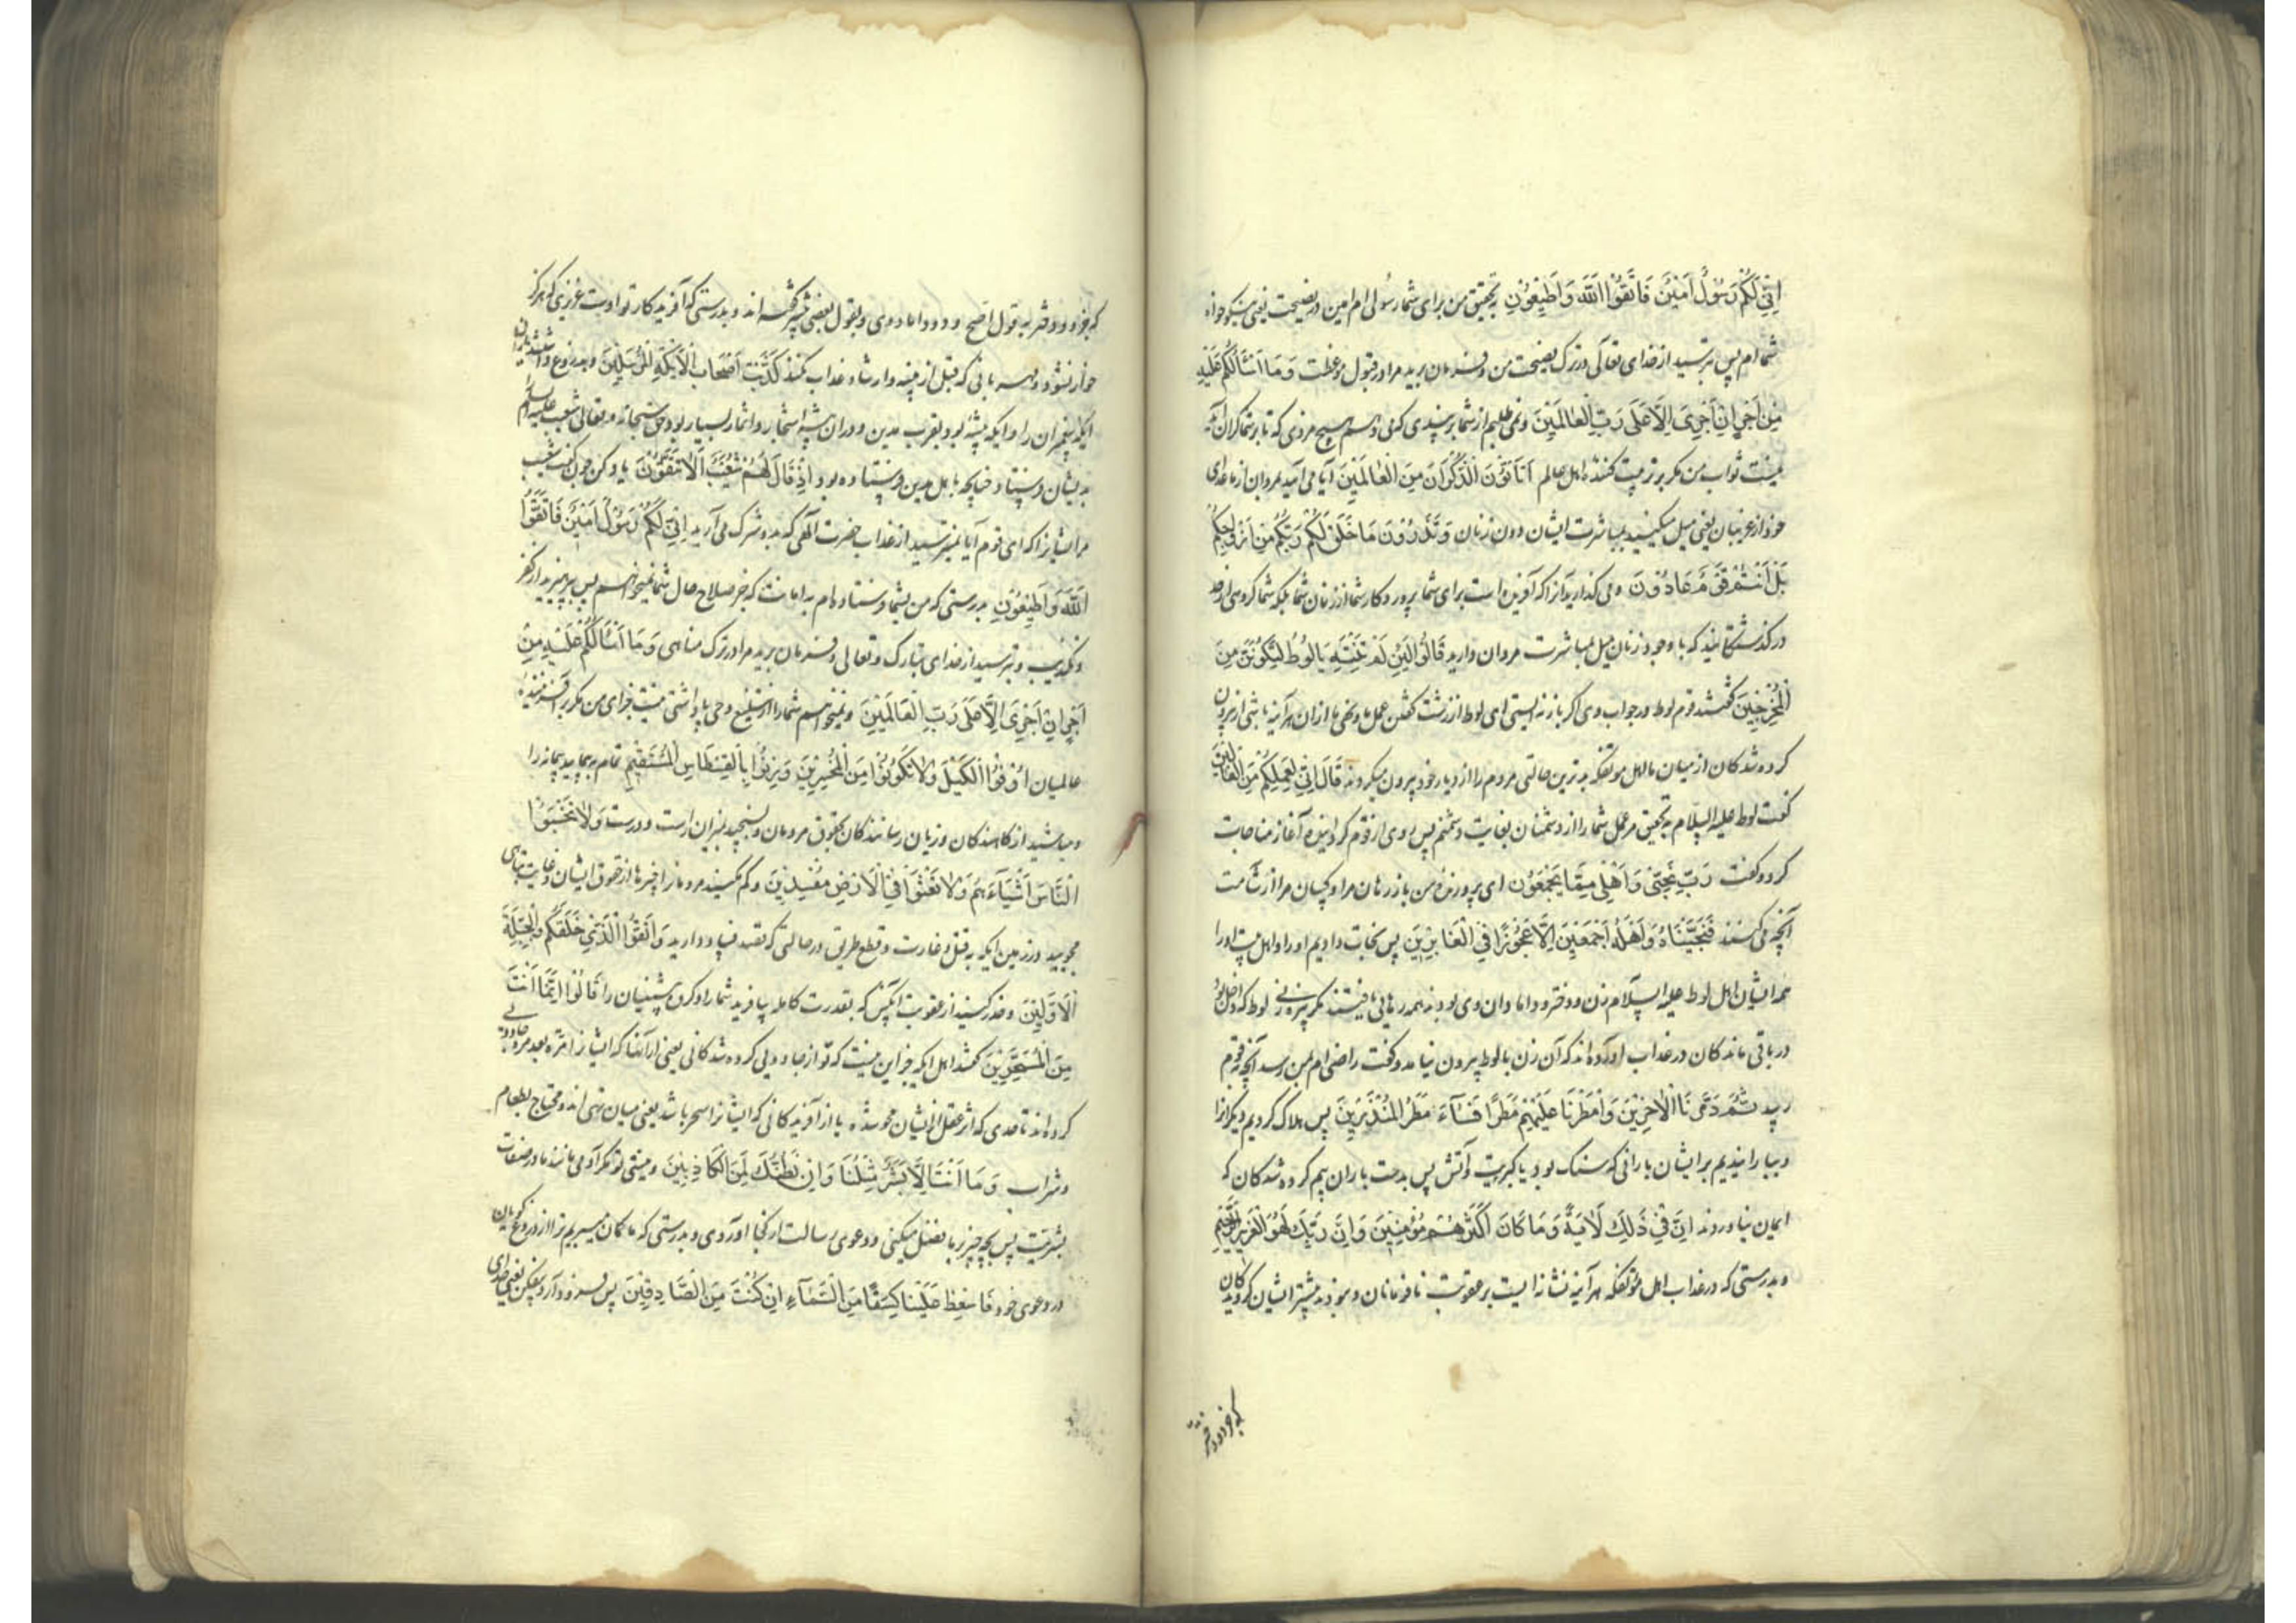 اِنِّي لَكُمْ رَسُوْلٌ اَمِيْنٌ فَاتَّقُوا اللّٰهَ وَاَطِيْعُوْنِ بتحقیق من برای شما رسولی ام امین در نصیحت یعنی نیکو خواه
شما ام پس بترسید از خدای تعالی در ترک نصیحت من و فرمان برید مرا در قبول موعظت وَمَا اَسْئَالُكُمْ عَلَيْهِ
مِنْ اَجْرٍ اِنْ اَجْرِىَ اِلَّا عَلَى رَبِّ الْعَالَمِيْنَ و نمی طلبم از شما بر پندی که می دهم هیچ مزدی که تا بر شما گران آید
نیست ثواب من مگر بر تربیت کننده اهل عالم اَتَأْتُوْنَ الذُّكْرَانَ مِنَ الْعَالَمِيْنَ آیا می آیید بمردان از ماعدای
خود از غریبان یعنی میل میکنید بمباشرت ایشان دون زنان وَتَذَرُوْنَ مَا خَلَقَ لَكُمْ رَبُّكُمْ مِنْ اَزْوَاجِكُمْ
بَلْ اَنْتُمْ قَوْمٌ عَادُوْنَ و می گذارید آنرا که آفریده است برای شما پروردگار شما از زنان شما بلکه شما گروهی از حد
در گذشتگانید که با وجود زنان میل بمباشرت مردان دارید قَالُوْا لَئِنْ لَمْ تَنْتَهِ يَا لُوْطُ لَتَكُوْنَنَّ مِنَ
الْمُخْرَجِيْنَ گفتند قوم لوط در جواب وی اگر باز نه ایستی ای لوط از زشت گفتن عمل ما و نهی ما از ان هر آینه باشی از بیرون
کرده شدگان از میان ما اهل موتفکه بدترین حالتی مردم را از دیار خود بیرون میکردند قَالَ اِنِّي لِعَمَلِكُمْ مِنَ الْقَالِيْنَ
گفت لوط علیه السلام بتحقیق مر عمل شما را از دشمنان بغایت دشمنم پس روی از قوم گردانیده آغاز مناجات
کرد و گفت رَبِّ نَجِّنِيْ وَاَهْلِيْ مِمَّا يَعْمَلُوْنَ ای پرورنده من باز رهان مرا و کسان مرا از شامت
آنچه می کنند فَنَجَّيْنَاهُ وَاَهْلَهُ اَجْمَعِيْنَ اِلَّا عَجُوْزًا فِي الْغَابِرِيْنَ پس نجات دادیم او را و اهل بیت او را
همه ایشان اهل لوط علیه السلام زن و دختر و دامادان وی بودند همه رهایی یافتند مگر پیره زنی زن لوط که داخل بود
در باقی ماندگان در عذاب آورده اند که آن زن با لوط بیرون نیامد و گفت راضی ام بمن رسد آنچه بقوم
رسد ثُمَّ دَمَّرْنَا الْاٰخَرِيْنَ وَاَمْطَرْنَا عَلَيْهِمْ مَطَرًا فَسَآءَ مَطَرُ الْمُنْذَرِيْنَ پس هلاک کردیم دیگرانرا
و ببارانیدیم بر ایشان بارانی که سنگ بود یا کبریت و آتش پس بد است باران بیم کرده شدگان که
ایمان نیاوردند اِنَّ فِيْ ذٰلِكَ لَاٰيَةً وَمَا كَانَ اَكْثَرُهُمْ مُؤْمِنِيْنَ وَاِنَّ رَبَّكَ لَهُوَ الْعَزِيْزُ الرَّحِيْمُ
و بدرستی که در عذاب اهل موتفکه هر آینه نشانه ایست بر عقوبت نافرمانان و نبودند بیشتر ایشان گرویدگان
که جز دو دختر
که جز دو دختر بقول اصح و دو داماد وی و بقول بعضی کشته اند و بدرستی که آفریدکار تو اوست عزیزی که هرگز
خوار نشود و مهربانی که قبل از تنبیه و ارشاد عذاب نکند كَذَّبَتْ اَصْحَابُ الْاَيْكَةِ الْمُرْسَلِيْنَ و بدروغ داشتند اهل
ایکه پیغمبران را و ایکه بیشه بود بقرب مدین و دران بیشه اشجار و اثمار بسیار بود حق سبحانه و تعالی شعیب علیه السلام
بدیشان فرستاد چنانچه باهل مدین فرستاده بود اِذْ قَالَ لَهُمْ شُعَيْبٌ اَلَا تَتَّقُوْنَ یاد کن چون گفت شعیب
مر ایشانرا که ای قوم آیا نمیترسید از عذاب حضرت الهی که بدو شرک می آرید اِنِّي لَكُمْ رَسُوْلٌ اَمِيْنٌ فَاتَّقُوا
اللّٰهَ وَاَطِيْعُوْنِ بدرستی که من بشما فرستاده ام به امانت که جز صلاح حال شما نمیخواهم پس بپرهیزید از کفر
و تکذیب و بترسید از خدای تبارک و تعالی و فرمان برید مرا در ترک مناهی وَمَا اَسْئَالُكُمْ عَلَيْهِ مِنْ
اَجْرٍ اِنْ اَجْرِىَ اِلَّا عَلَى رَبِّ الْعَالَمِيْنَ و نمیخواهم شما را از تبلیغ وحی پاداشتی نیست جزای من مگر بر آفریننده
عالمیان اَوْفُوا الْكَيْلَ وَلَا تَكُوْنُوْا مِنَ الْمُخْسِرِيْنَ وَزِنُوْا بِالْقِسْطَاسِ الْمُسْتَقِيْمِ تمام بپیمایید پیمانه را
و مباشید از کاهندگان و زیان رسانندگان بحقوق مردمان و بسنجید بمیزان راست و درست وَلَا تَبْخَسُوا
النَّاسَ اَشْيَآءَهُمْ وَلَا تَعْثَوْا فِي الْاَرْضِ مُفْسِدِيْنَ و کم مکنید مردمانرا چیزها از حقوق ایشان و غایت تباهی
مجویید در زمین ایکه به قتل و غارت و قطع طریق در حالتی که قصد فساد دارید وَاتَّقُوا الَّذِيْ خَلَقَكُمْ وَالْجِبِلَّةَ
الْاَوَّلِيْنَ و حذر کنید از عقوبت آنکس که بقدرت کامله بیافرید شما را و گروه پیشینیان را قَالُوْا اِنَّمَا اَنْتَ
مِنَ الْمُسَحَّرِيْنَ گفتند اهل ایکه جز این نیست که تو از جادویی کرده شدگانی یعنی از آنها که ایشانرا مرة بعد مرة جادویی
کرده اند تا حدی که اثر عقل از ایشان محو شده یا از آفریدگانی که ایشانرا سحر باشد یعنی میان تهی اند و محتاج بطعام
و شراب وَمَا اَنْتَ اِلَّا بَشَرٌ مِثْلُنَا وَاِنْ نَظُنُّكَ لَمِنَ الْكَاذِبِيْنَ و نیستی تو مگر آدمی مانند ما در صفات
بشریت پس بچه چیز بر ما تفضل میکنی و دعوی رسالت از کجا آوردی و بدرستی که ما گمان میبریم ترا از دروغ گویان
در دعوی خود فَاَسْقِطْ عَلَيْنَا كِسَفًا مِنَ السَّمَآءِ اِنْ كُنْتَ مِنَ الصَّادِقِيْنَ پس فرود آر و بیفکن یعنی خدای